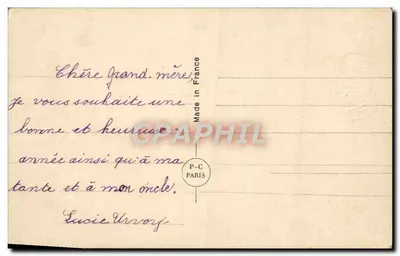 Chère Grand-mère
Je vous souhaite une
bonne et heureuse
année ainsi qu'à ma
tante et à mon oncle.
Lucie Urvoy
Made in France
P-C
PARIS
CPAPHIL